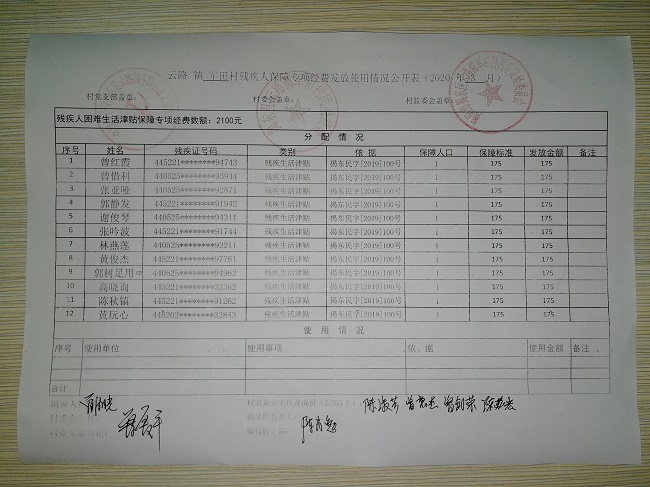 云路 镇 军田村残疾人保障专项经费发放使用情况公开表（2020 年 3 月）
村党支部盖章： 村委会盖章： 村监委会盖章：
残疾人困难生活津贴保障专项经费数额：2100元
分 配 情 况
序号 姓名 残疾证号码 类别 依 据 保障人口 保障标准 发放金额 备注
1 曾红霞 445221********94743 残疾生活津贴 揭东民字[2019]100号 1 175 175
2 曾惜科 440525********93944 残疾生活津贴 揭东民字[2019]100号 1 175 175
3 张亚哑 440525********92871 残疾生活津贴 揭东民字[2019]100号 1 175 175
4 郭静发 445221********91942 残疾生活津贴 揭东民字[2019]100号 1 175 175
5 谢俊琴 440525********94311 残疾生活津贴 揭东民字[2019]100号 1 175 175
6 张吟波 445221********91744 残疾生活津贴 揭东民字[2019]100号 1 175 175
7 林燕莲 440525********92211 残疾生活津贴 揭东民字[2019]100号 1 175 175
8 黄俊杰 445221********97761 残疾生活津贴 揭东民字[2019]100号 1 175 175
9 郭树足用 440525********94962 残疾生活津贴 揭东民字[2019]100号 1 175 175
10 高晓询 445221********32562 残疾生活津贴 揭东民字[2019]100号 1 175 175
11 陈秋镇 445221********91262 残疾生活津贴 揭东民字[2019]100号 1 175 175
12 黄玩心 445202********32843 残疾生活津贴 揭东民字[2019]100号 1 175 175
使 用 情 况
序号 使用单位 使用事项 依 据 使用金额 备注
合计